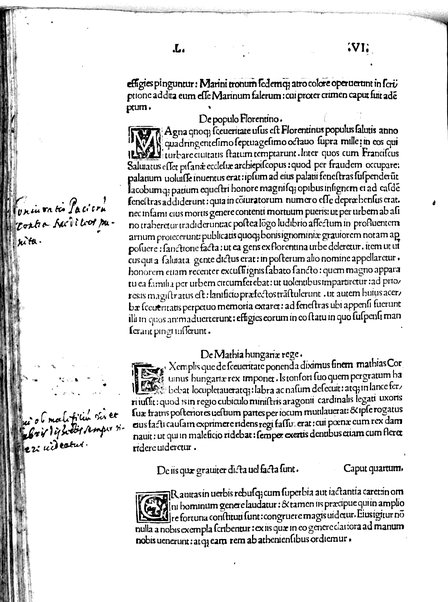 L. VI.
effigies pinguntur: Marini tronum sedemq; atro colore operuerunt in scri
ptione addita eum esse Marinum falerum: cui propter crimen caput fuit adē
ptum.
De populo Florentino.
MAgna quoq; sceueritate usus est Florentinus populus salutis anno
quadringentesimo septuagesimo octauo supra mille: in eos qui
turbare ciuitatis statum temptarunt. Inter quos cum Franciscus
Saluiatus esset pisanæ ecclesiæ archiepiscopus: quod per fraudem occupare
palatium uoluisse inuentus erat: ipsum ad eius palatii fenestras suspenderūt
Iacobum q; patium equestri honore magnisq; opibus insignem ei ad easdē
fenestras addiderunt: quia in cōiuratorum numero esse depræhensus erat.
nec infami eius mortis genere contenti mortuum pueris: ut per urbem ab asi
no traheretur tradiderunt
posuere: sanctione facta: ut ea gens ex florentina urbe deleretur. item ut ui
cus qui a saluiata gente dictus erat: in posterum alio nomine appellaretur.
honorem etiam recenter excussi ignis sabato sancto: quem magno appara
tu ea familia per urbem circumferebat: ut uolentibus impartiretur: ad prio
res magistratus est: lanificio præfectos trāstulerunt. ut autem huius acer
bæ sceueritatis perpetuo memoria extaret: ad fenestras ubi appensi fuerunt
illi in quos animaduerterunt: effigies eorum in eo statu in quo suspensi man
serant pingi iusserunt.
De Mathia hungariæ rege.
EXemplis que de sceueritate ponenda diximus finem mathias Cor
uinus hungariæ rex imponet. Is tonsori suo quem pergratum ha
bebat locupletaueratq;: labra ac nasum desecuit: atq; in lance fer
ri iussit: quod is in regio cubiculo ministris aragonii cardinalis legati uxoris
suæ fratris posteriores uestium partes per iocum mutilauerat: & ipse rogatus
eius facti causam exprimere ridens regi fassus erat: cui pœnæ eum rex dam
nauit: ut qui in maleficio ridebat: semper exertis dentibus etiam cum fleret
ridere uideretur.
De iis quæ grauiter dicta uel facta sunt. Caput quartum.
GRauitas in uerbis rebusq; cum superbia aut iactantia caret: in om
ni hominum genere laudatur: & tamen iis præcipue qui in amplio
re fortuna constituti sunt: congruere magis uidetur. Eius igitur nō
nulla a nobis exempla scribentur: ex iis quæ in eo genere clariora ad manum
nobis uenerunt: atq; eam rem ab atheniensibus ordiemur.
Coniuratio Pacioru
contra
nita.
ob maleficiu
semper ri
uideatur.